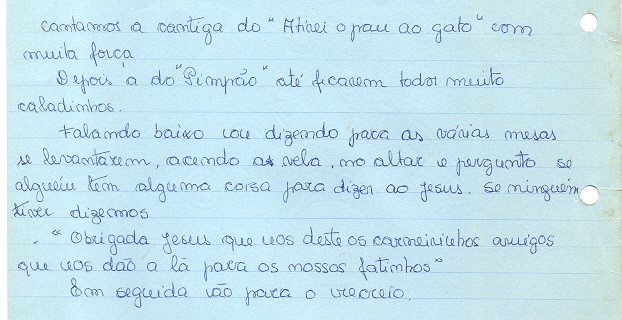 cantamos a cantiga do "Atirei o pau ao gato" com
muita força
Depois a do "Pimpão" até ficarem todos muito
caladinhos.
Falando baixo vou dizendo para as várias mesas
se levantarem, acendo a vela, no altar e pergunto se
alguém tem alguma coisa para dizer ao Jesus. Se ninguém
tiver dizemos
"Obrigada Jesus que nos deste os carneirinhos amigos
que nos dão a lã para os nossos fatinhos"
Em seguida vão para o recreio.